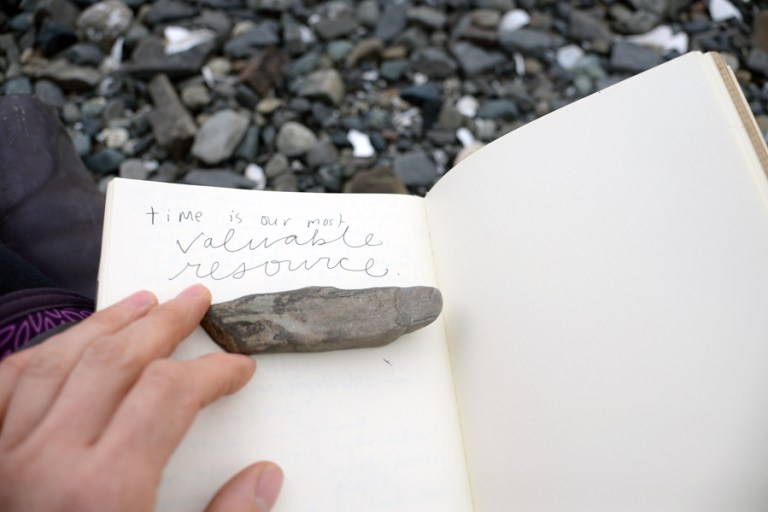 time is our most
valuable
resource.